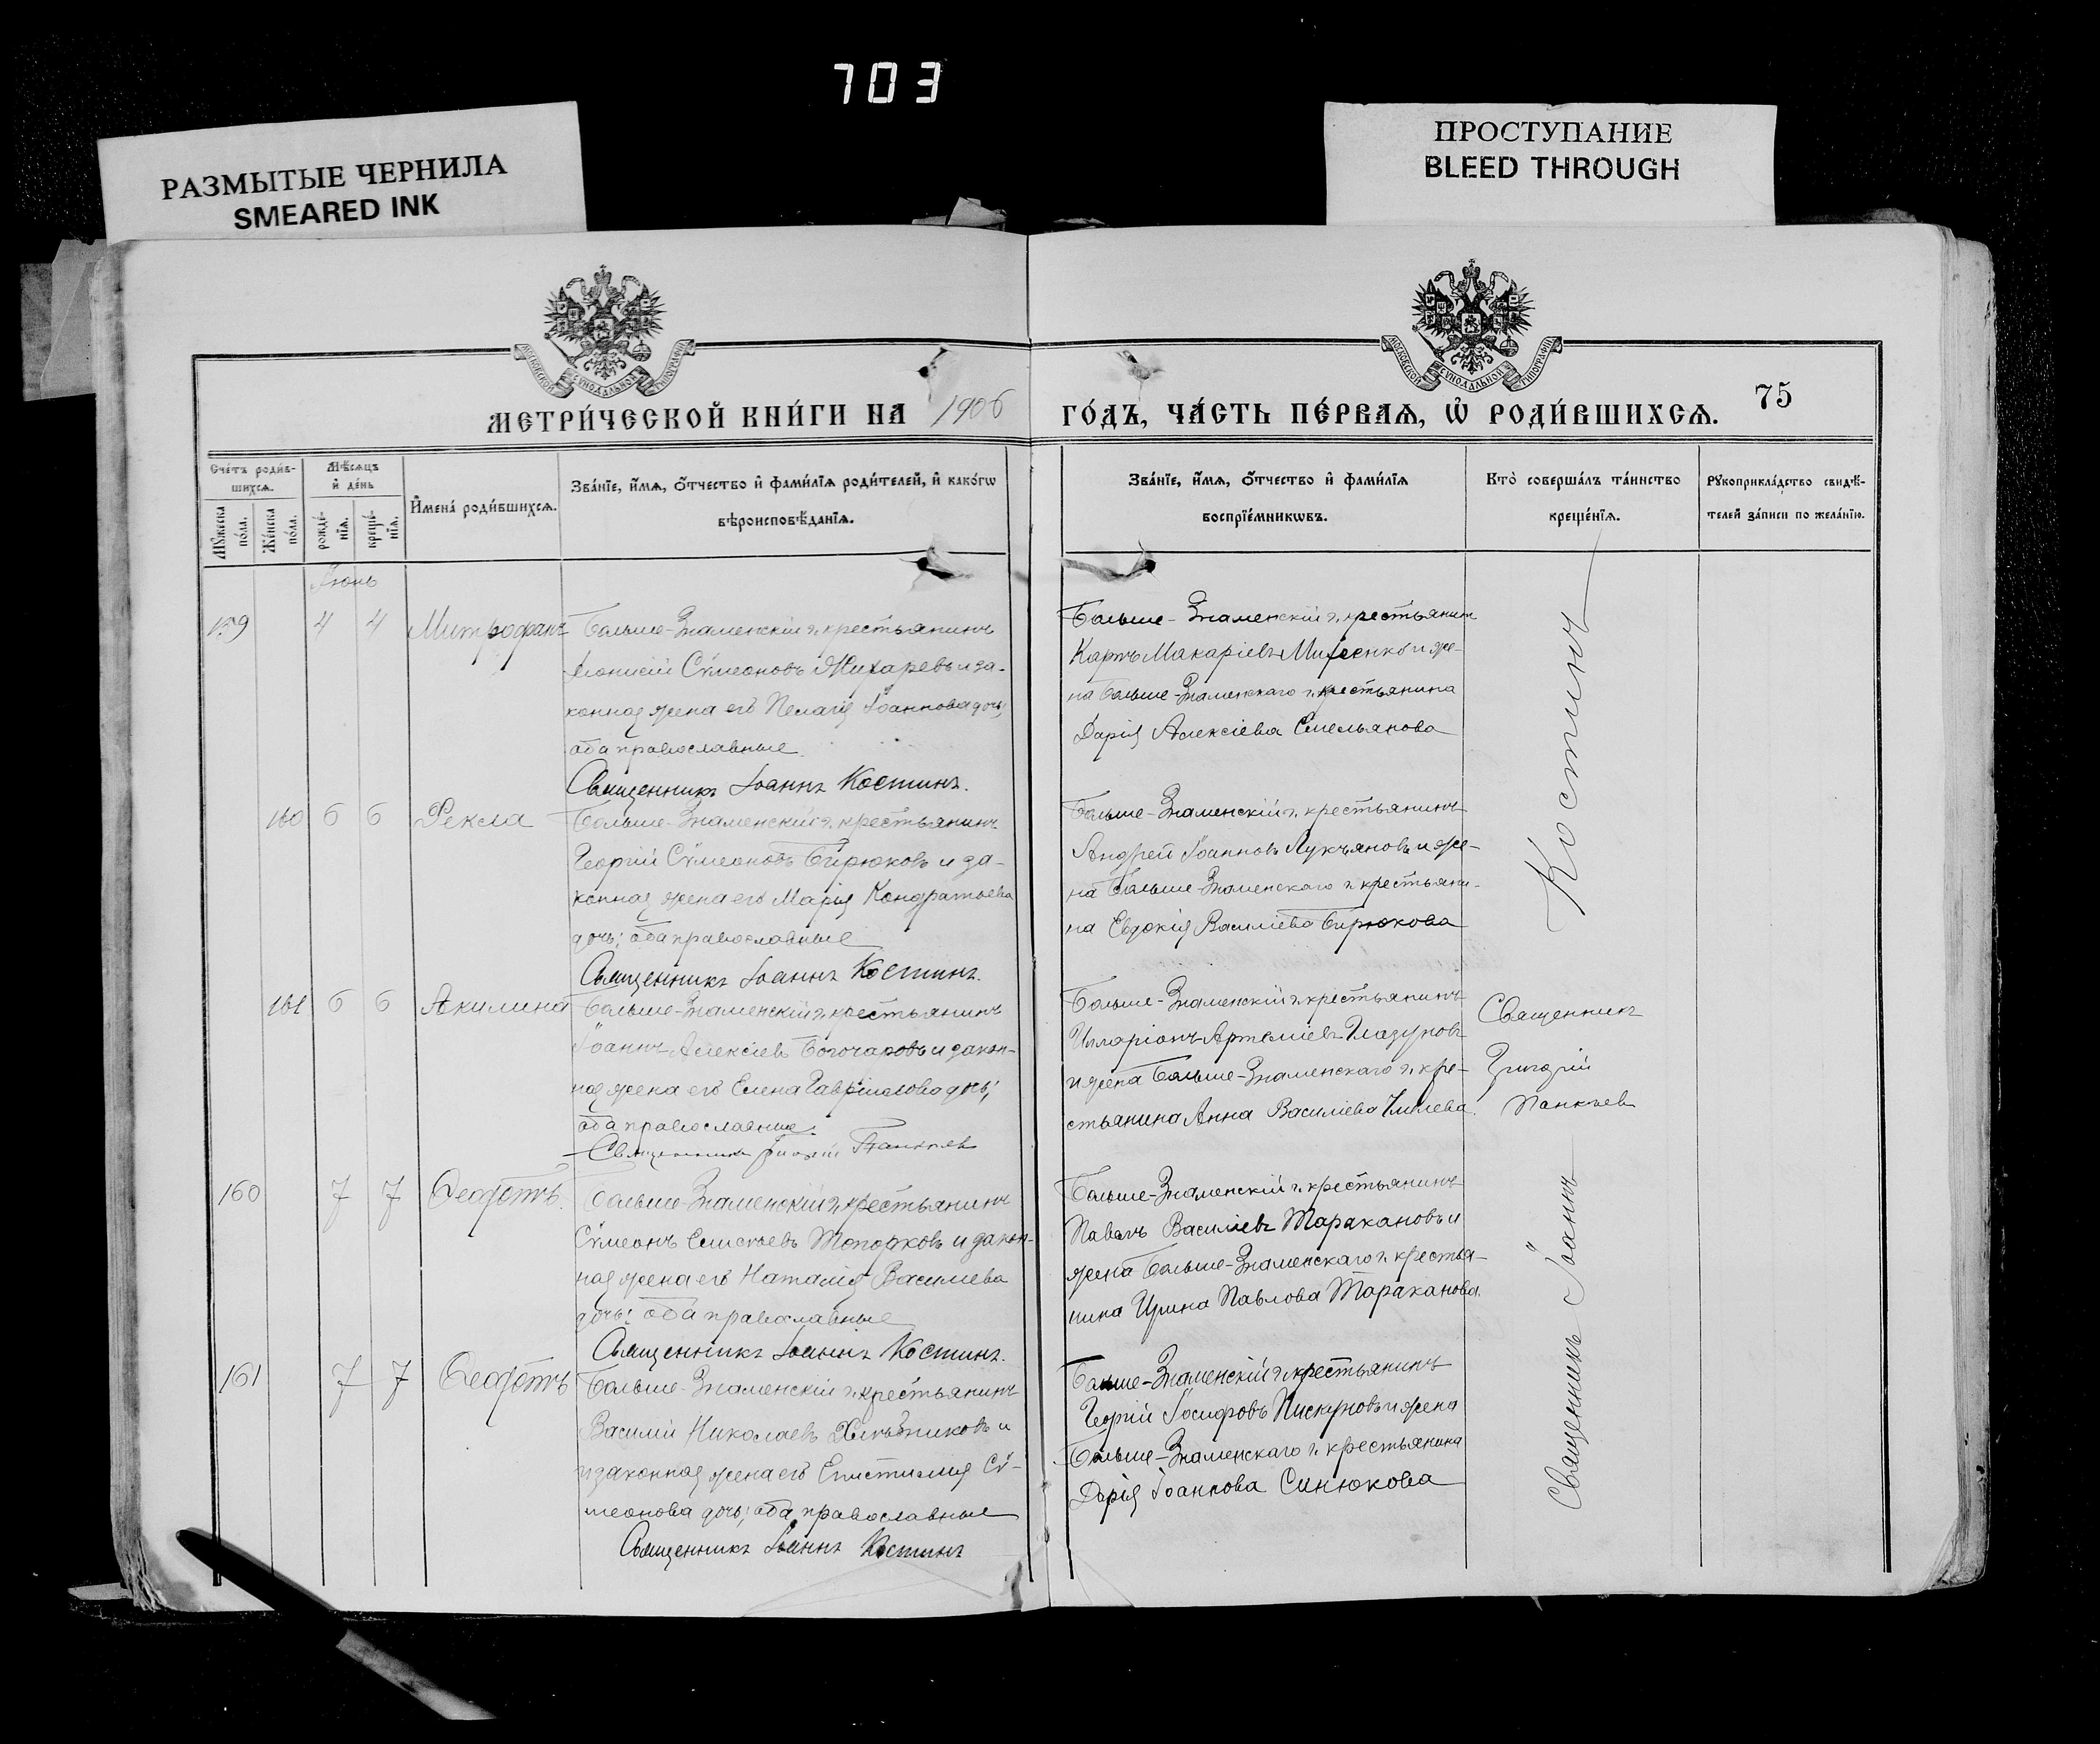 703
РАЗМЫТЫЕ ЧЕРНИЛА
SMEARED INK
ПРОСТУПАНИЕ
BLEED THROUGH
МОСКОВСКОЙ СѴНОДАЛЬНОЙ ТИПОГРАФІИ
МОСКОВСКОЙ СѴНОДАЛЬНОЙ ТИПОГРАФІИ
МЕТРИ́ЧЕСКОЙ КНИ́ГИ НА 1906 ГО́ДЪ, ЧА́СТЬ ПЕ́РВАѦ, Ѡ҆ РОДИ́ВШИХСѦ. 75
Сче́тъ роди́в-
шихсѧ.
Мꙋ́жеска по́ла.
Же́нска по́ла.
Мѣ́сѧцъ
и҆ де́нь
рожде́-
нїѧ.
креще́-
нїѧ.
И҆мена̀ роди́вшихсѧ.
Зва́нїе, и҆́мѧ, о҆́тчество и҆ фами́лїѧ роди́телей, и҆ како́гѡ
вѣроисповѣ́данїѧ.
Зва́нїе, и҆́мѧ, о҆́тчество и҆ фами́лїѧ
воспрїе́мникѡвъ.
Кто̀ соверша́лъ та́инство
креще́нїѧ.
Рꙋкоприкла́дство свидѣ́-
телей за́писи по жела́нїю.
Іюнь
159 4 4 Митрофанъ
Больше-Знаменскій г. крестьянинъ
Діонисій Сѵмеоновъ Жихаревъ и за-
конная жена его Пелагія Іоаннова дочь;
оба православные
Священникъ Іоаннъ Костинъ.
Больше-Знаменскій г. крестьянинъ
Карпъ Макаріевъ и же-
на Больше-Знаменскаго г. крестьянина
Дарія Алексіева Емельянова
160 6 6 Фекла
Больше-Знаменскій г. крестьянинъ
Георгій Сѵмеоновъ Бирюковъ и за-
конная жена его Марія Кондратьева
дочь; оба православные
Священникъ Іоаннъ Костинъ.
Больше-Знаменскій г. крестьянинъ
Андрей Іоанновъ Лукьяновъ и же-
на Больше-Знаменскаго г. крестьяни-
на Евдокія Василіева Бирюкова
161 6 6 Акилина
Больше-Знаменскій г. крестьянинъ
Іоаннъ Алексіевъ и закон-
ная жена его Елена Гавріилова дочь;
оба православные.
Священникъ Григорій Панкѣев
Больше-Знаменскій г. крестьянинъ
Илларіонъ Артеміевъ Глазуновъ
и жена Больше-Знаменскаго г. кре-
стьянина Анна Василіева
Священникъ
Григорій
Панкѣев
160 7 7 Ѳеодотъ.
Больше-Знаменскій г. крестьянинъ
Сѵмеонъ Елисѣевъ Топорковъ и закон-
ная жена его Наталія Василіева
дочь; оба православные
Священникъ Іоаннъ Костинъ.
Больше-Знаменскій г. крестьянинъ
Павелъ Василіевъ Таракановъ и
жена Больше-Знаменскаго г. крестья-
нина Ирина Павлова Тараканова.
161 7 7 Ѳеодотъ
Больше-Знаменскій г. крестьянинъ
Василій Николаевъ Хлѣбниковъ и
и законная жена его Епистимія Сѵ-
меонова дочь; оба православные
Священникъ Іоаннъ Костинъ
Больше-Знаменскій г. крестьянинъ
Георгій Іосифовъ Пискуновъ и жена
Больше-Знаменскаго г. крестьянина
Дарія Іоаннова Синюкова
Священникъ Іоаннъ Костинъ